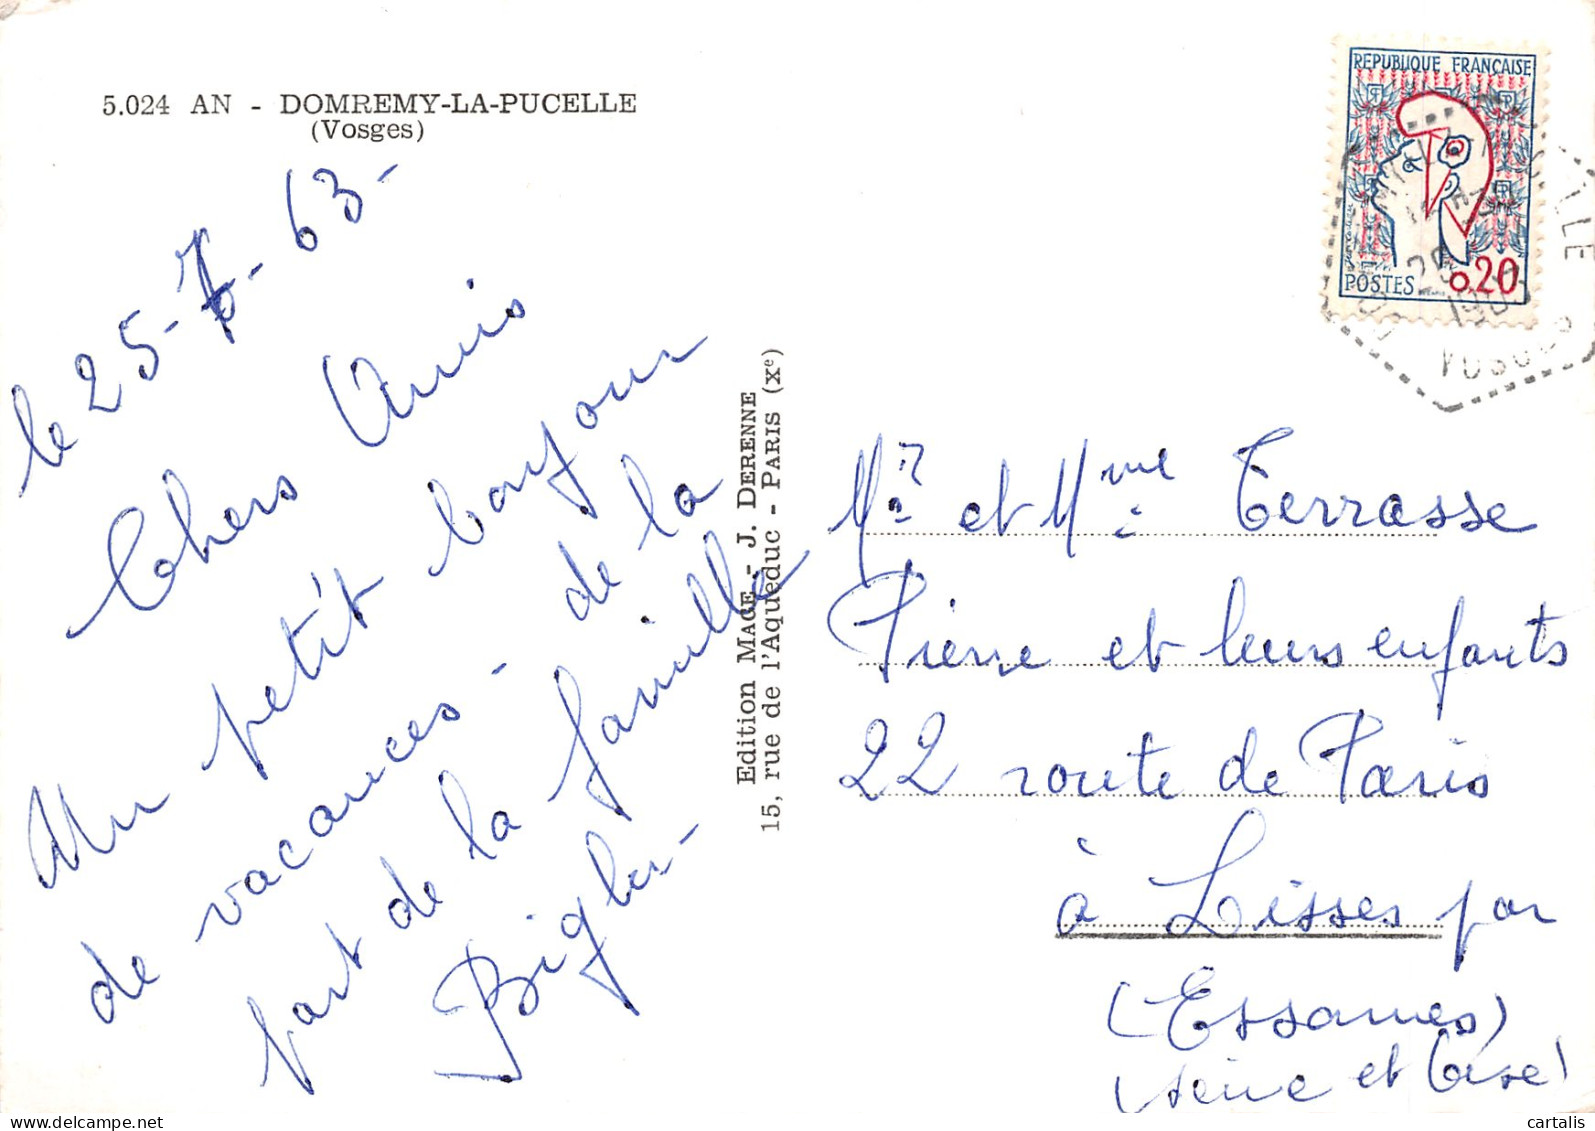 5.024 AN - DOMREMY-LA-PUCELLE
(Vosges)
le 25-7-63-
Chers Amis
Un petit bonjour
de vacances - de la
part de la famille
Bigler-
Edition MAGE - J. DERENNE
15, rue de l'Aqueduc - PARIS (Xe)
REPUBLIQUE FRANÇAISE
POSTES 0,20
VOSGES
Mr et Mme Terrasse
Pierre et leurs enfants
22 route de Paris
à Lisses par
(Essonnes)
(Seine et Oise)
cartalis